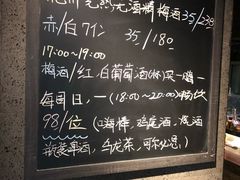 无酒精梅酒35/238
赤/白ワイン 35/180
17:00~19:00
梅酒/红.白葡萄酒(杯)买一赠一
每周日,一(18:00~20:00)畅饮
98/位(嗨棒,鸡尾酒,清酒
瓶装啤酒,乌龙茶,可尔必思)